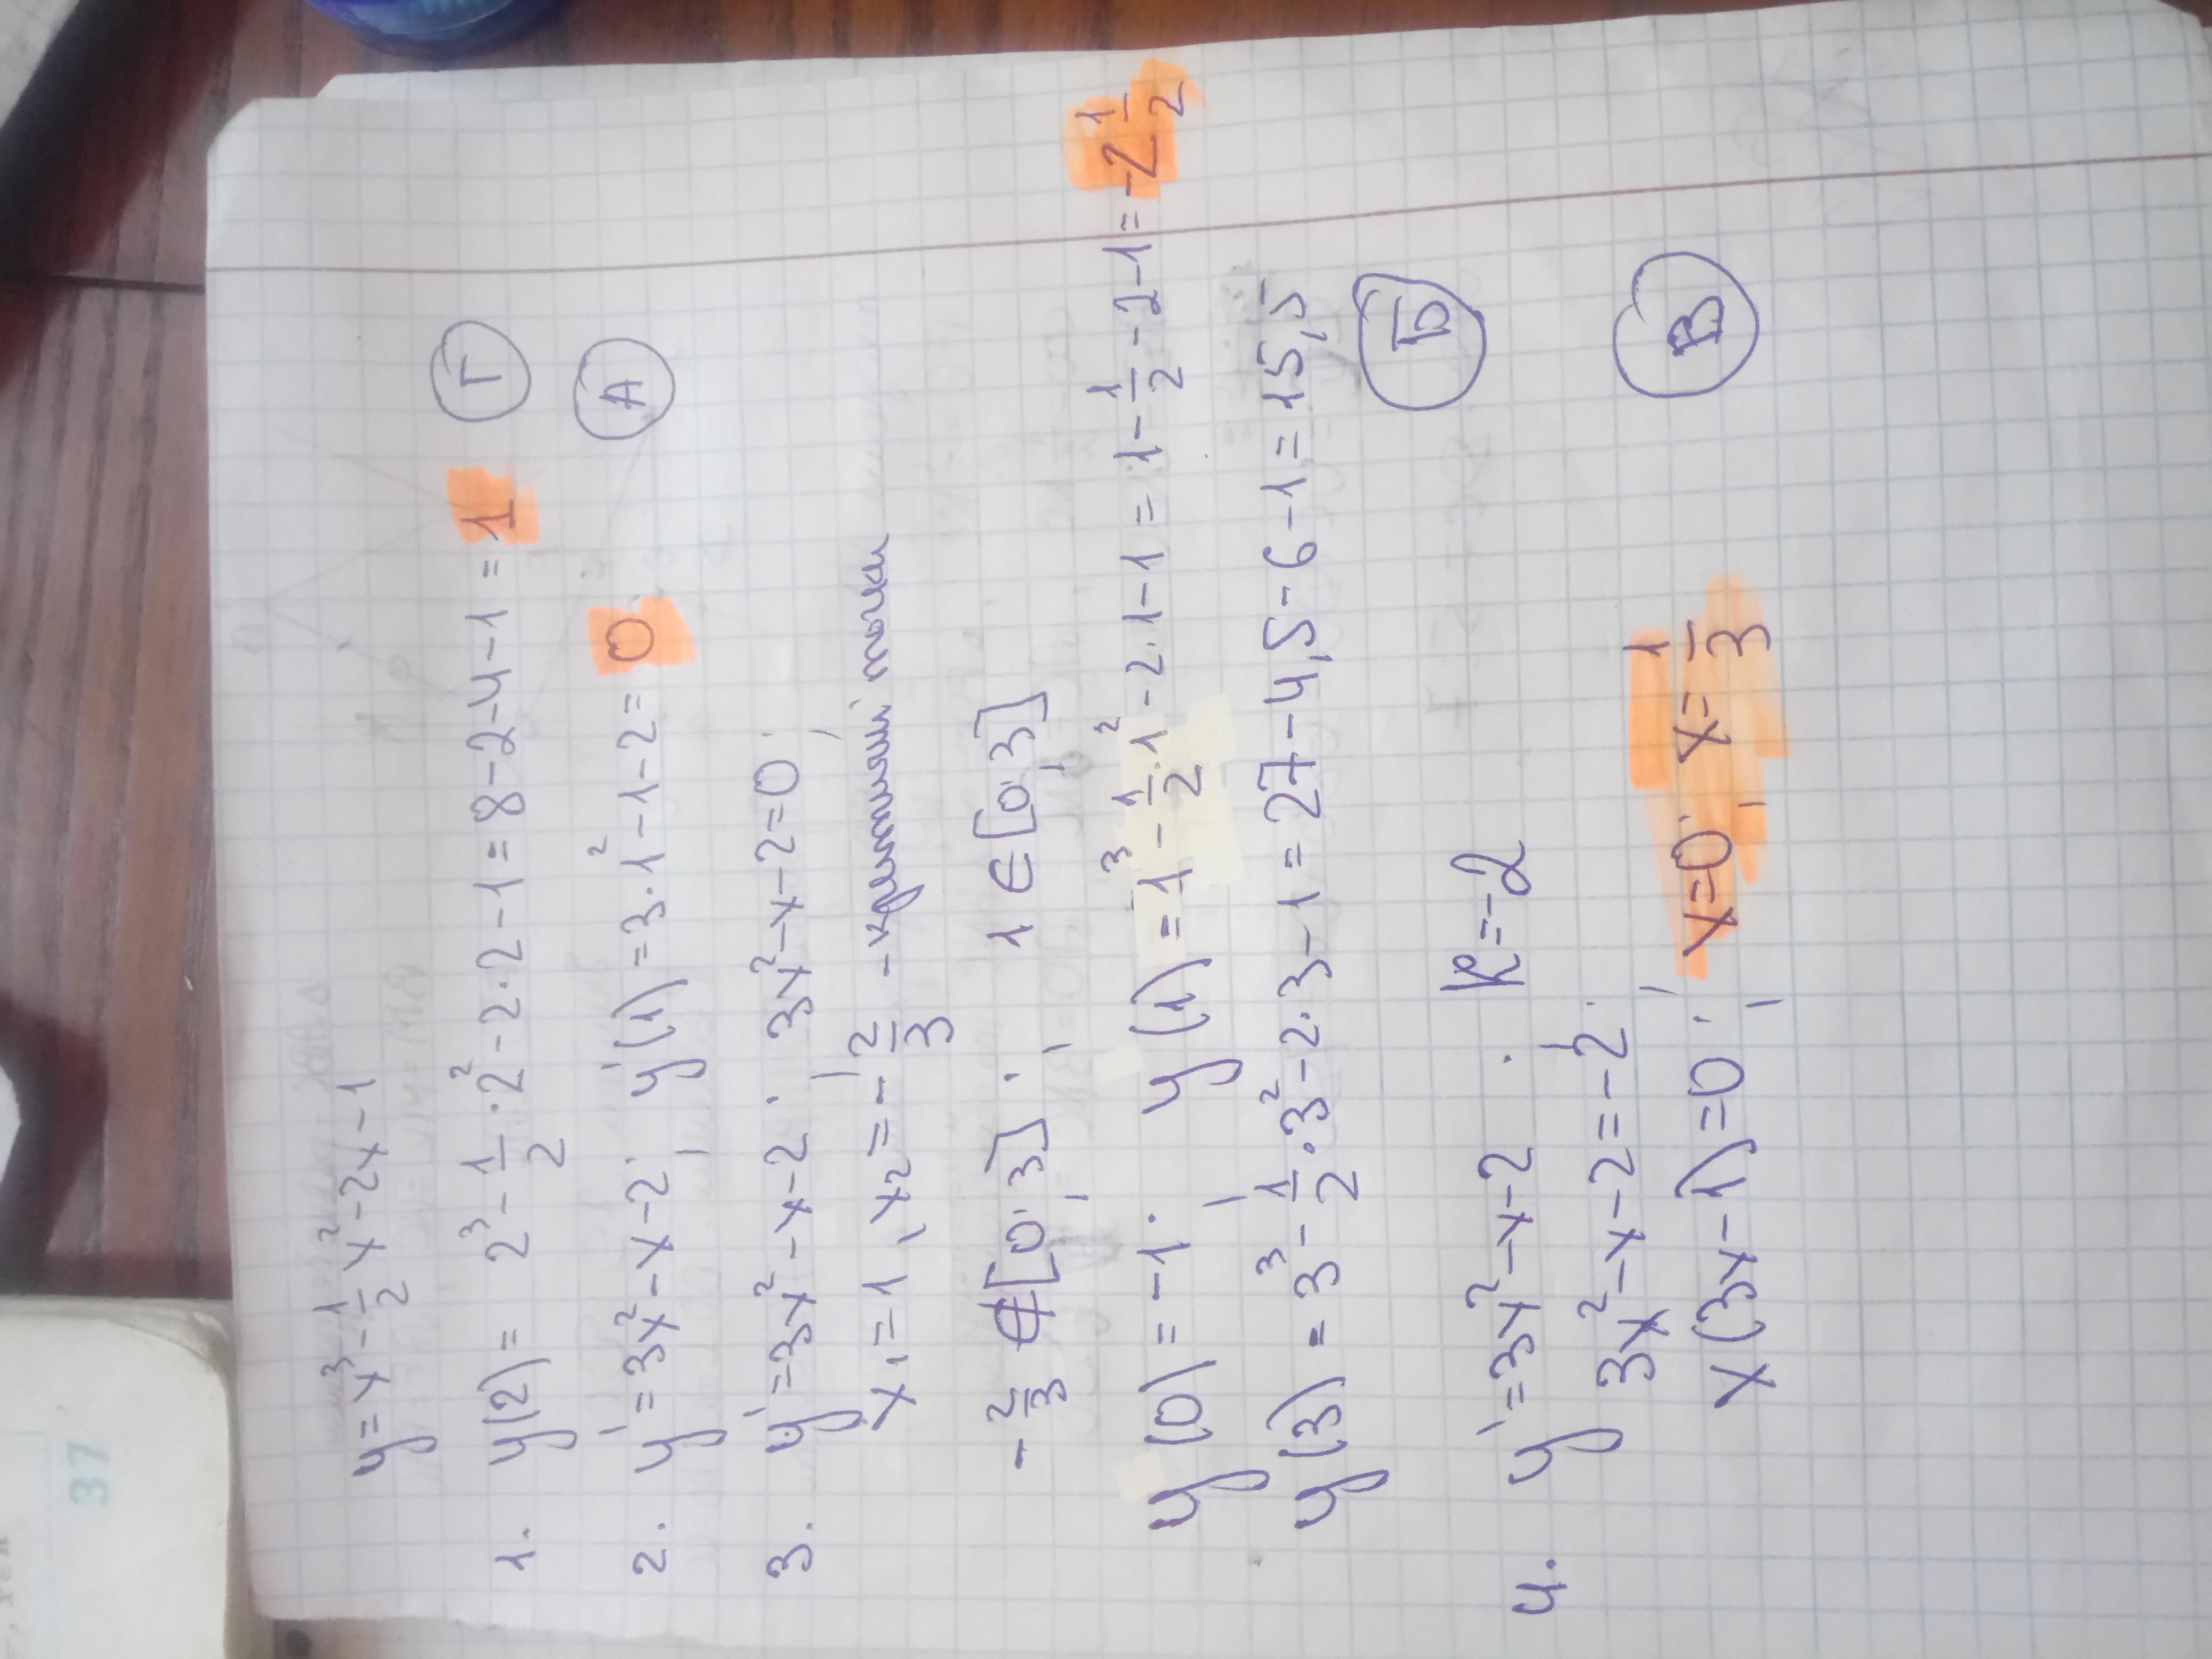 y=x³-1/2x²-2x-1
1. y(2)= 2³-1/2·2²-2·2-1=8-2-4-1=1 Г
2. y'=3x²-x-2; y'(1)=3·1²-1-2=0 А
3. y'=3x²-x-2; 3x²-x-2=0;
x₁=1, x₂=-2/3 - критичні точки
-2/3∉[0;3]; 1∈[0;3]
y(0)=-1; y(1)=1³-1/2·1²-2·1-1=1-1/2-2-1=-2 1/2
y(3)=3³-1/2·3²-2·3-1=27-4,5-6-1=15,5
Б
4. y'=3x²-x-2; k=-2
3x²-x-2=-2;
x(3x-1)=0; x=0; x=1/3 В
37